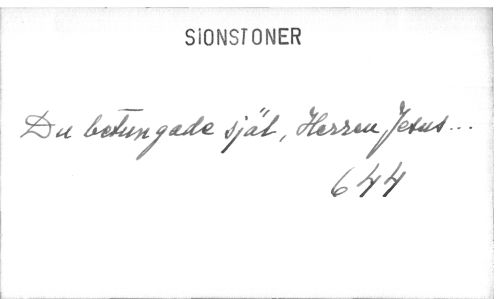 SIONSTONER
Du betungade själ, Herren Jesus...
644